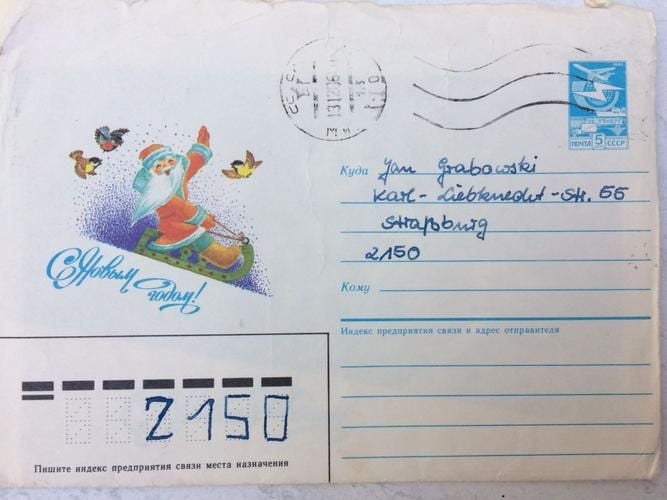 ПОЧТА 5 СССР
Куда Jan Grabowski
Karl-Liebknecht-Str. 55
Straßburg
2150
Кому
Индекс предприятия связи и адрес отправителя
С Новым
годом!
2150
Пишите индекс предприятия связи места назначения